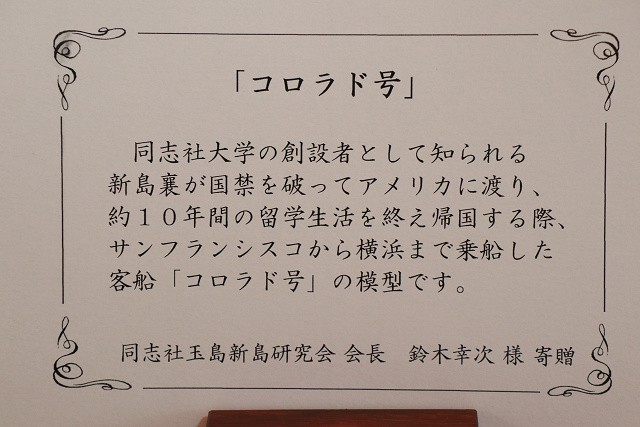 「コロラド号」
同志社大学の創設者として知られる
新島襄が国禁を破ってアメリカに渡り、
約１０年間の留学生活を終え帰国する際、
サンフランシスコから横浜まで乗船した
客船「コロラド号」の模型です。
同志社玉島新島研究会 会長　鈴木幸次 様 寄贈